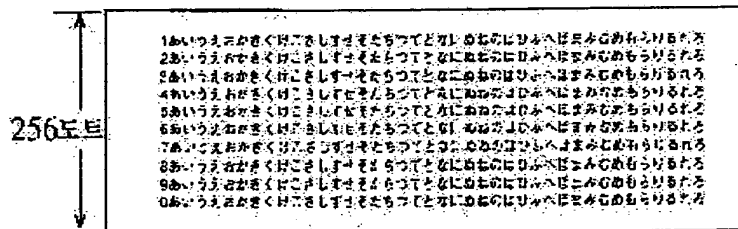 1あいうえおかきくけこさしすせそたちつてとなにぬねのはひふへほまみむめもらりるれろ
2あいうえおかきくけこさしすせそたちつてとなにぬねのはひふへほまみむめもらりるれろ
3あいうえおかきくけこさしすせそたちつてとなにぬねのはひふへほまみむめもらりるれろ
4あいうえおかきくけこさしすせそたちつてとなにぬねのはひふへほまみむめもらりるれろ
5あいうえおかきくけこさしすせそたちつてとなにぬねのはひふへほまみむめもらりるれろ
256도트
6あいうえおかきくけこさしすせそたちつてとなにぬねのはひふへほまみむめもらりるれろ
7あいうえおかきくけこさしすせそたちつてとなにぬねのはひふへほまみむめもらりるれろ
8あいうえおかきくけこさしすせそたちつてとなにぬねのはひふへほまみむめもらりるれろ
9あいうえおかきくけこさしすせそたちつてとなにぬねのはひふへほまみむめもらりるれろ
0あいうえおかきくけこさしすせそたちつてとなにぬねのはひふへほまみむめもらりるれろ